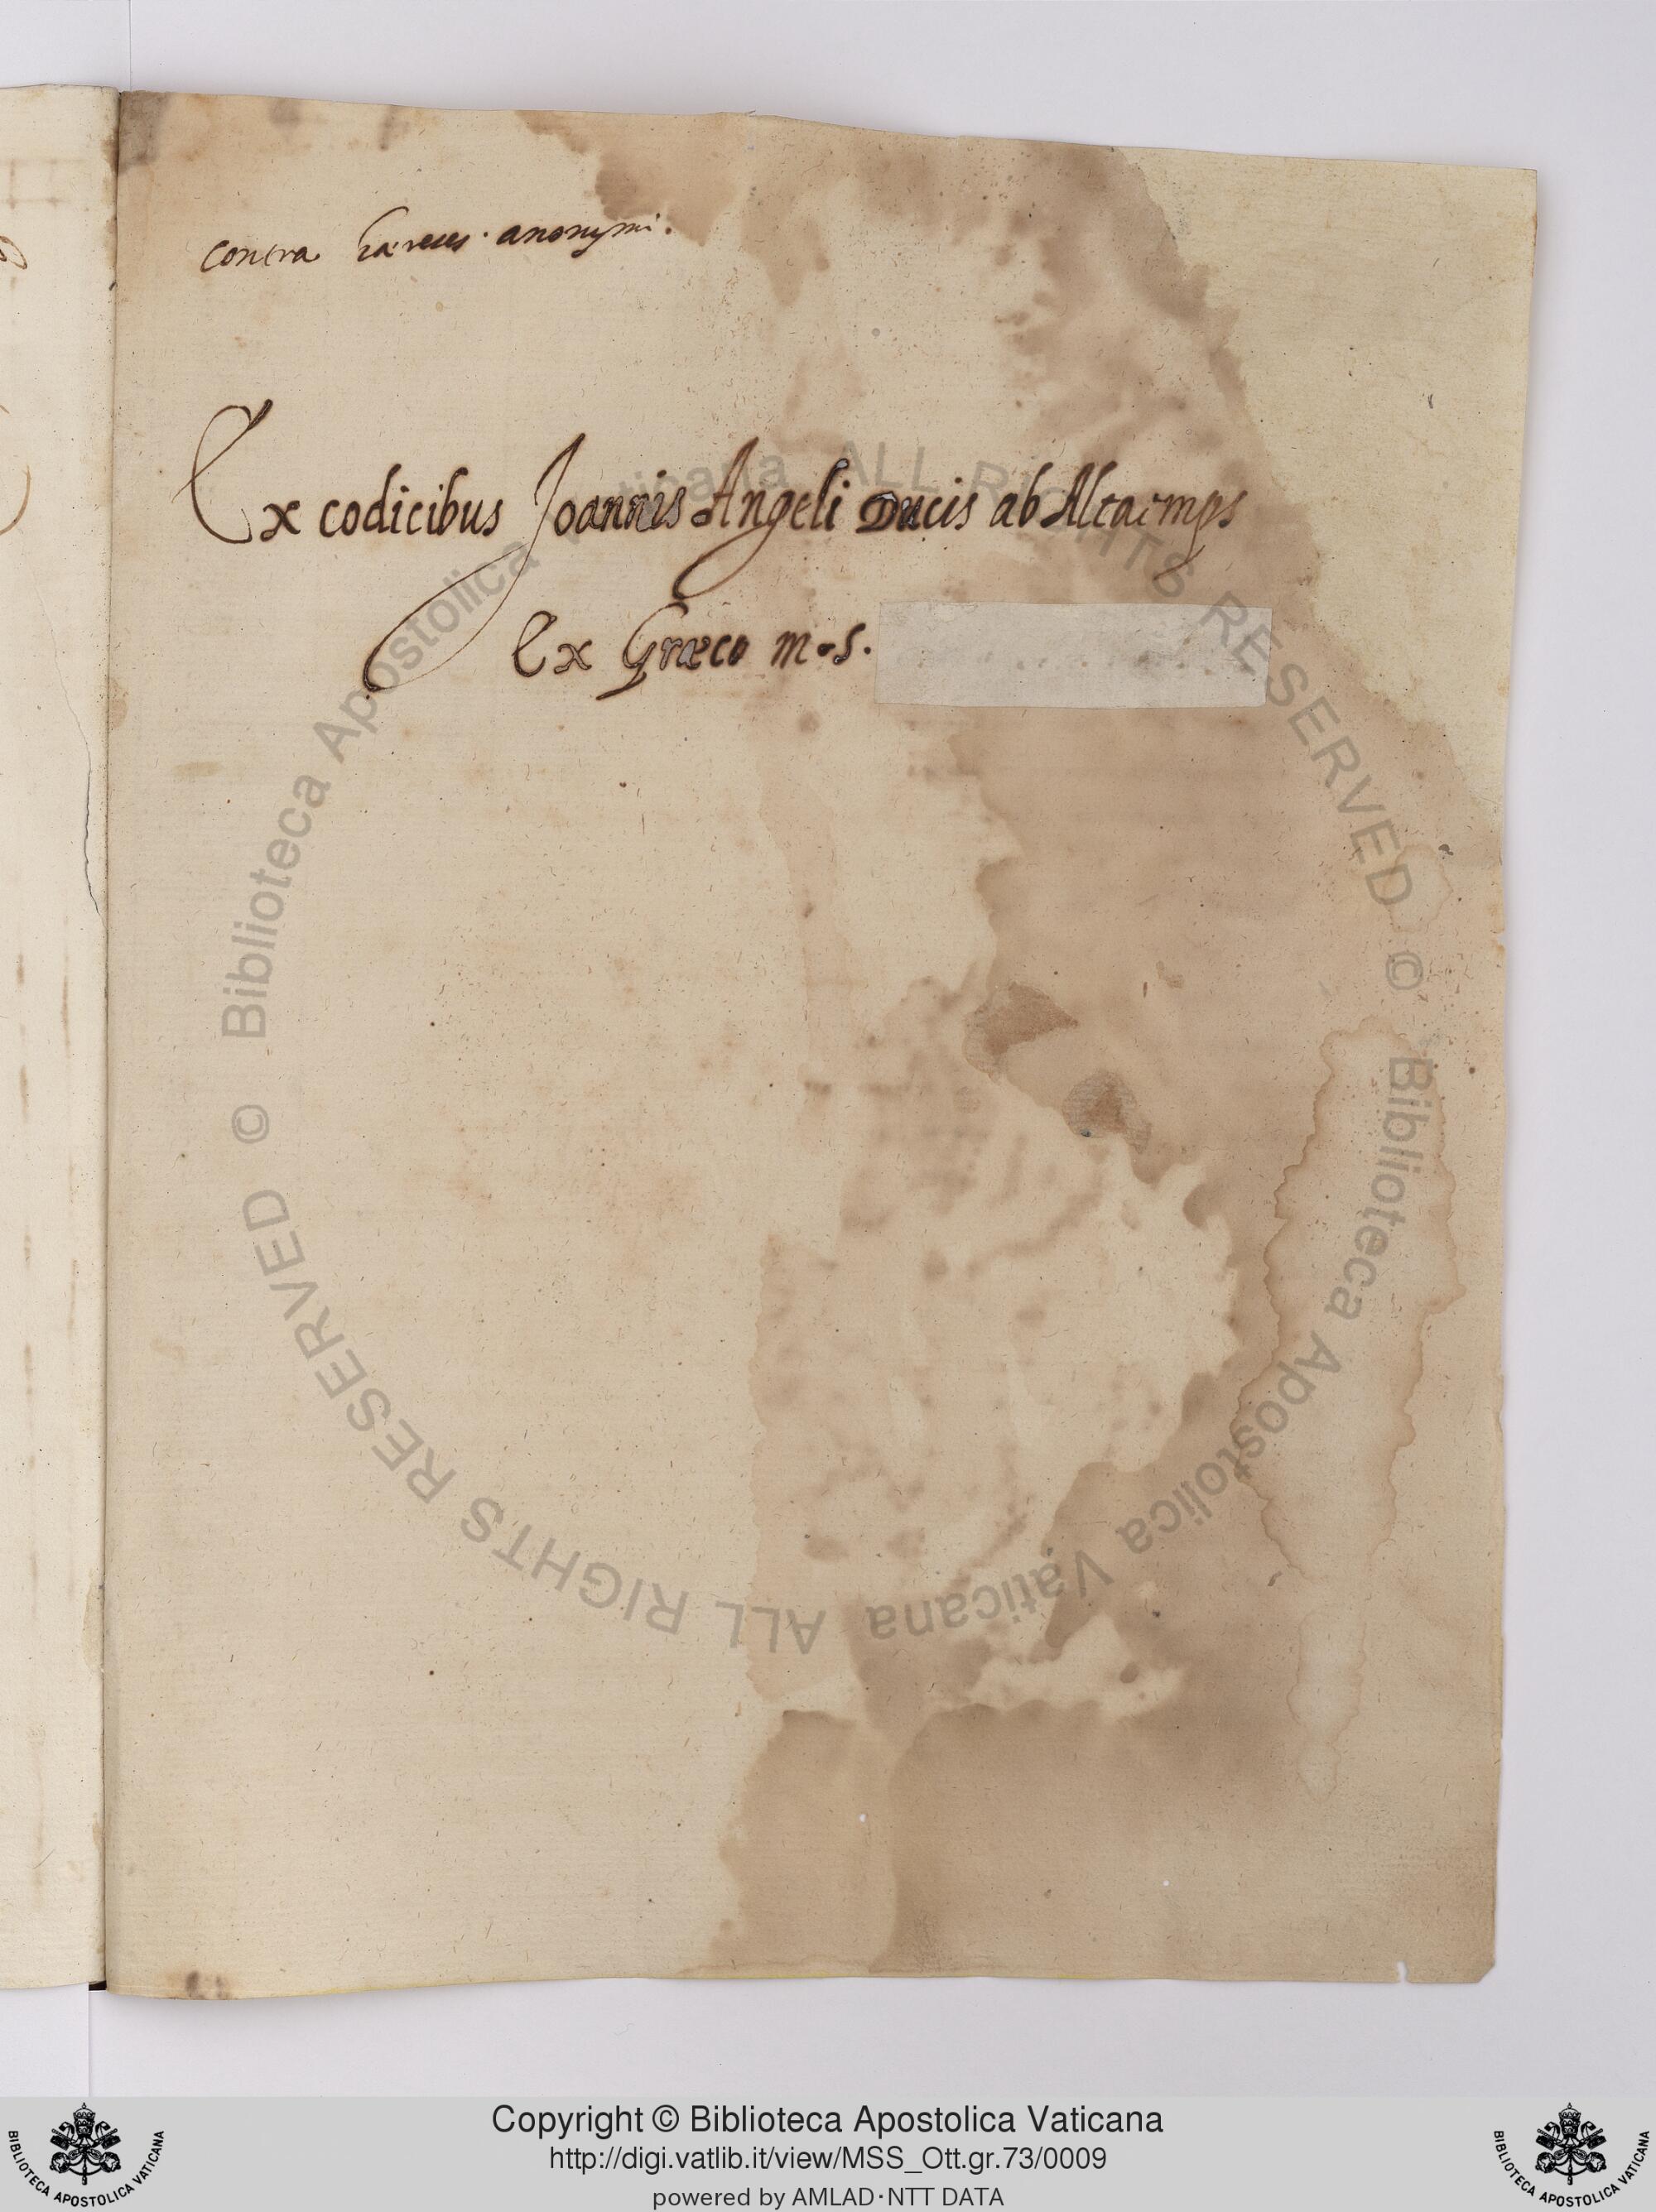 contra haereses · anonymi.
Ex codicibus Joannis Angeli Ducis ab Altaemps
Ex Græco m.s.
© Biblioteca Apostolica Vaticana ALL RIGHTS RESERVED
© Biblioteca Apostolica Vaticana ALL RIGHTS RESERVED
Copyright © Biblioteca Apostolica Vaticana
http://digi.vatlib.it/view/MSS_Ott.gr.73/0009
powered by AMLAD·NTT DATA
BIBLIOTECA APOSTOLICA VATICANA
BIBLIOTECA APOSTOLICA VATICANA